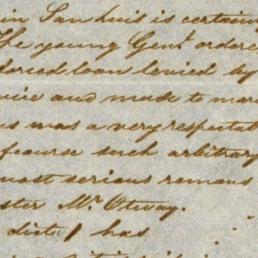 in San luis is certain
The young Gent. ordere
forced loan levied by
and made to mar
was a very respectab
of course such arbitrary
most serious remons
ster Mr. Otway.
ditto has